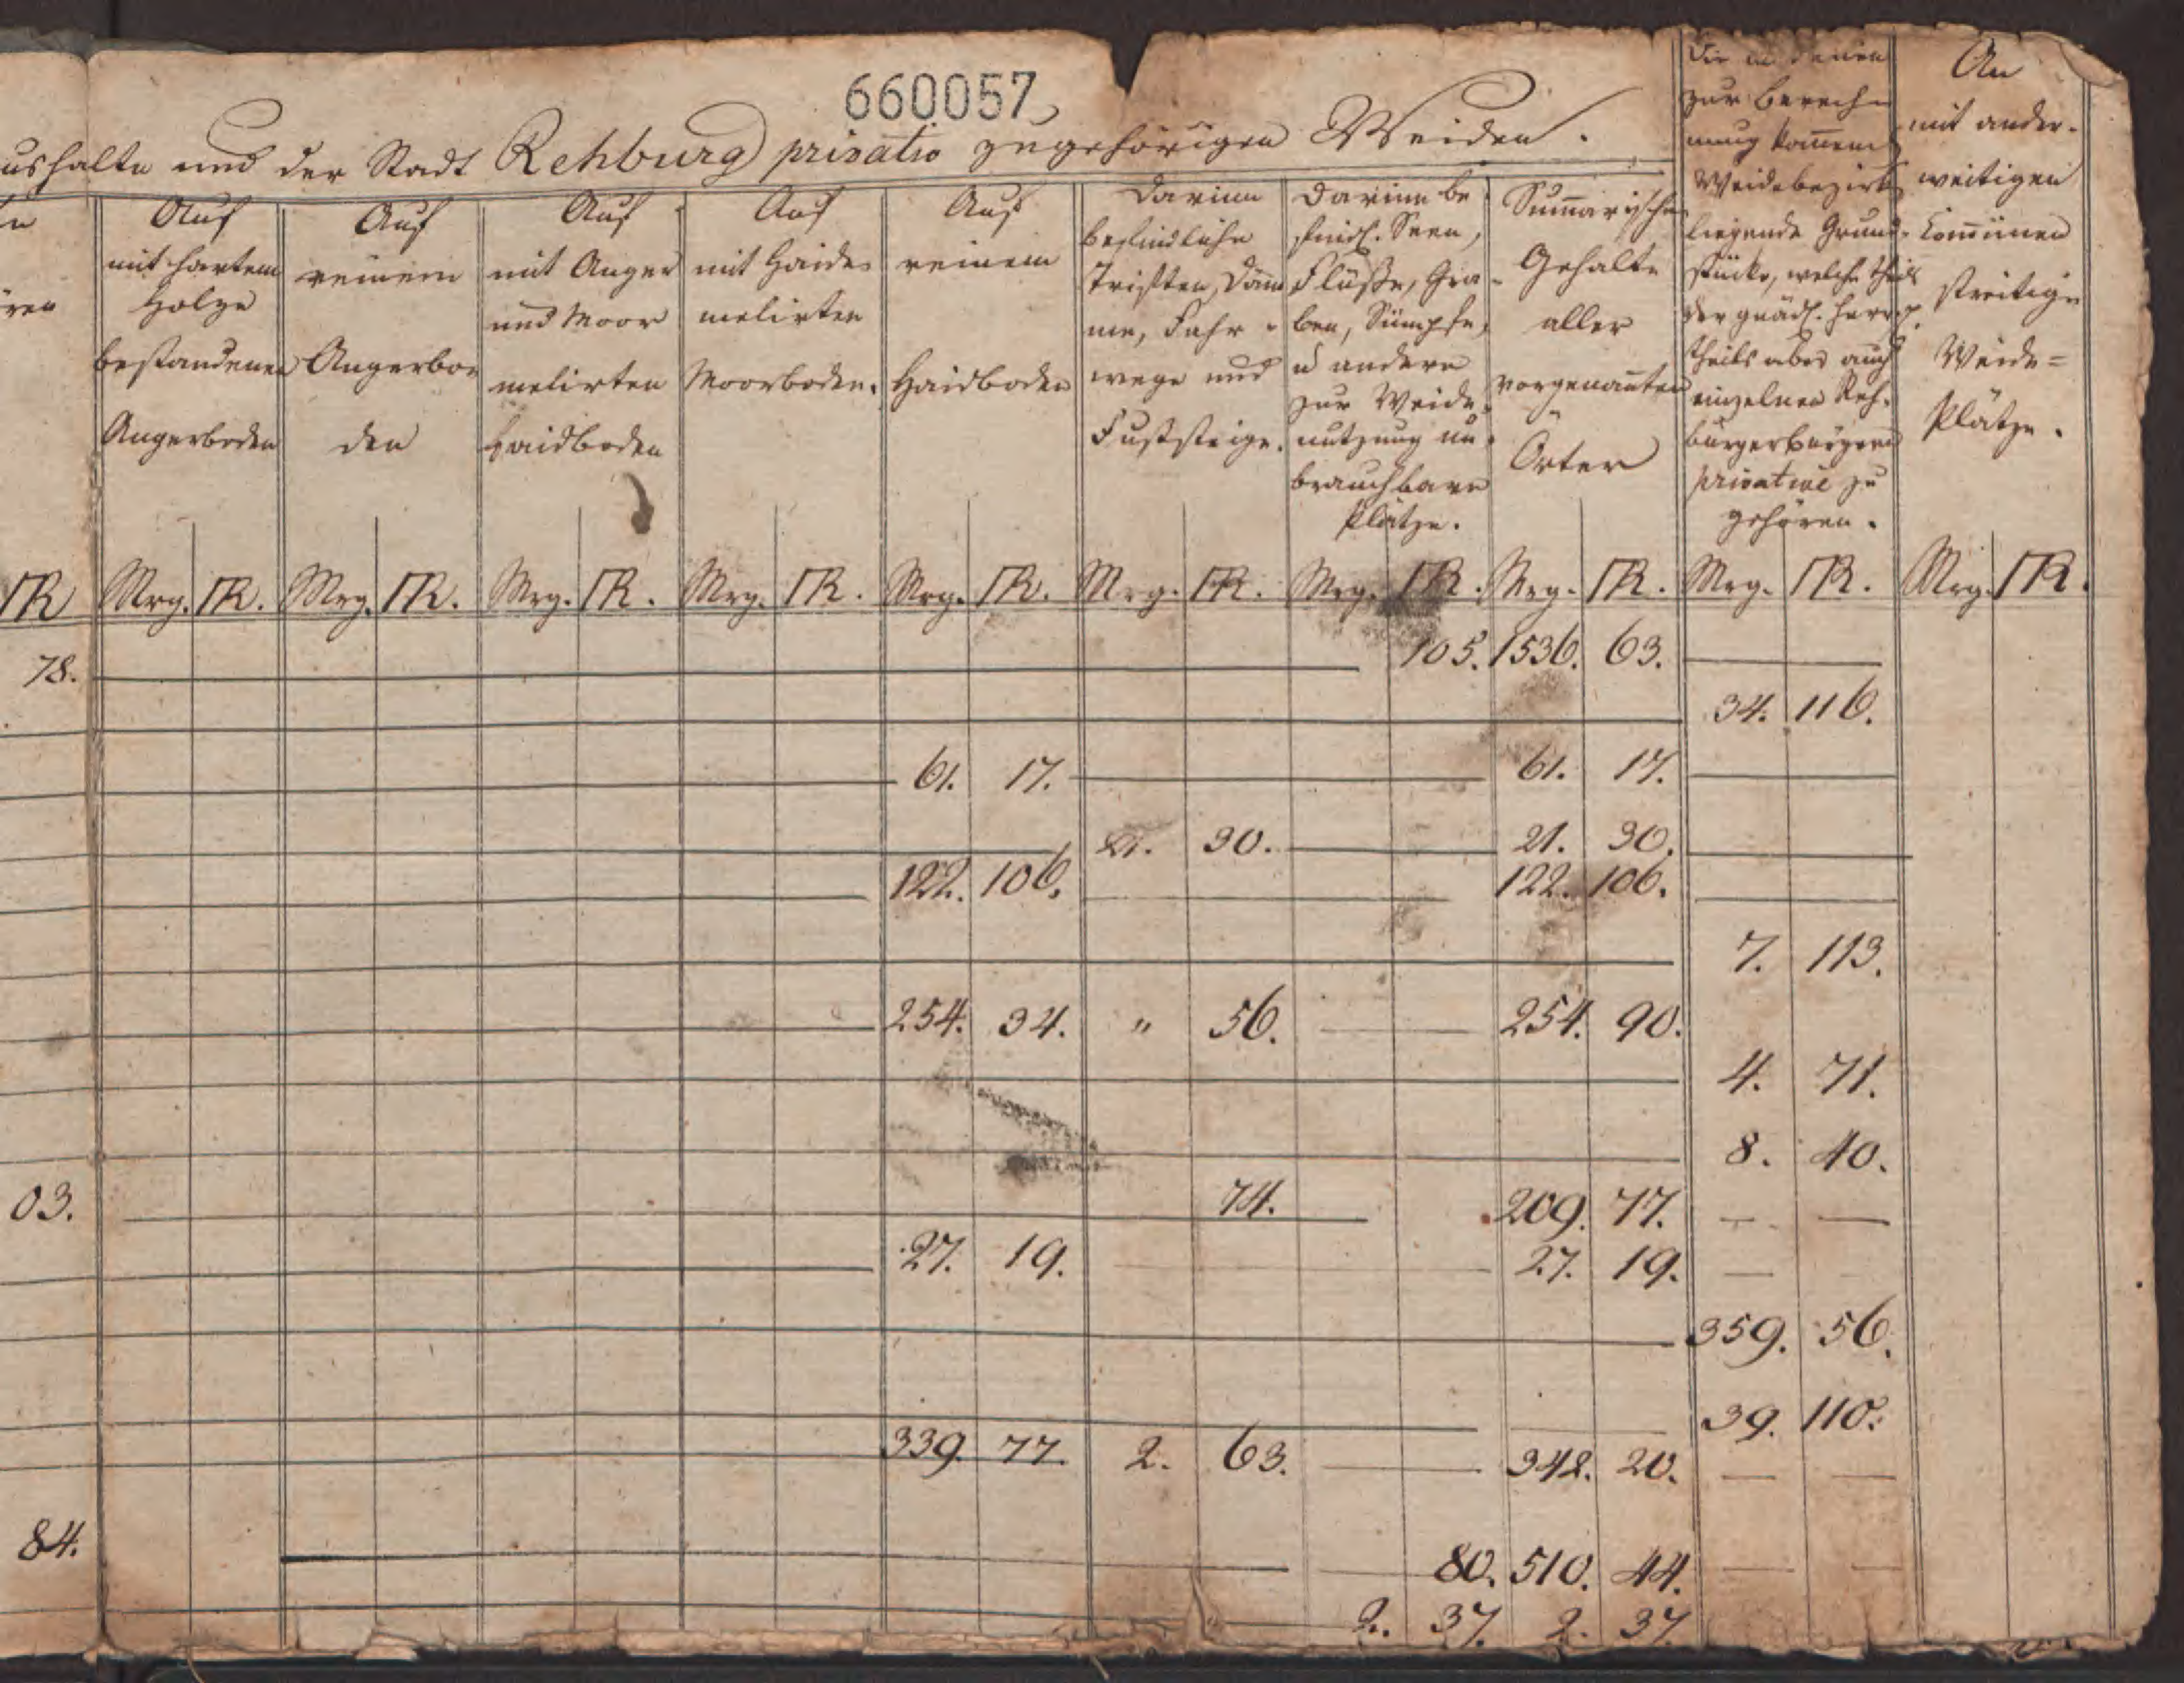 660057
ushalte und der Stadt Rehburg privativ zugehörigen Weiden.
Auf
mit hartem
Holze
bestandenen
Angerboden
Auf
reinem
Angerbo
den
Auf
mit Anger
und Moor
melirten
Haidboden
Auf
mit Haide
melirten
Moorboden.
Auf
reinem
Haidboden
Darinn
befindliche
Triften, Däm
me, Fahr
wege und
Fußsteige.
Darinn be
findl. Seen,
Flüße, Gra
ben, Sümpfe,
u andere
zur Weide
nutzung un
brauchbare
Plätze.
Sum̄arische
Gehalte
aller
vorgenan̄ten
Örter
Die in denen
zur berech
nung kom̄en
Weidebezirk
liegende Grund
stücke, welche theils
der gnädl. Herr
theils aber auch
einzelnen Reh
burger Bürgern
privative zu
gehören.
An
mit ander-
weitigen
Com̄ünen
streitige
Weide=
Plätze.
R Mrg. R. Mrg. R. Mrg. R. Mrg. R. Mrg. R. Mrg. R. Mrg. R. Mrg. R. Mrg. R. Mrg. R.
78. 105. 1536. 63.
34. 116.
61. 17. 61. 17.
21. 30. 21. 30.
122. 106. 122. 106.
7. 113.
254. 34. " 56. 254. 90.
4. 71.
8. 40.
03. 74. 209. 77.
27. 19. 27. 19.
359. 56.
39. 110.
339. 77. 2. 63. 342. 20.
84. 80. 510. 44.
2. 37. 2. 37.